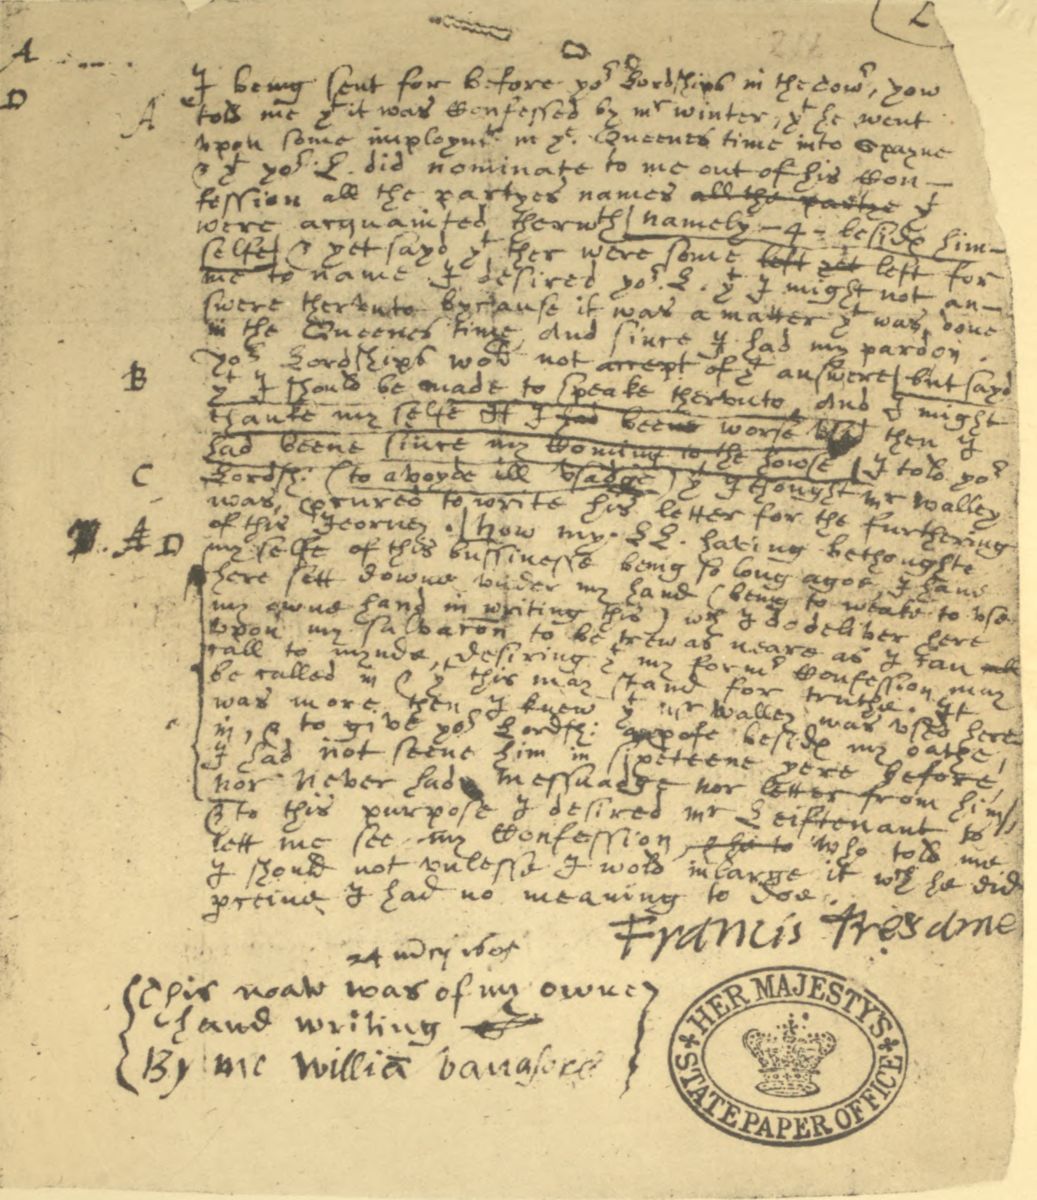 L
212
A
D
A
I being sent for before yor Lordships in the towr, yow
told me yt it was Confessed by mr winter, yt he went
vpon some imploymt in ye. Queenes time into Spayne
& yt yor. L. did nominate to me out of his Con-
fession all the partyes names all the partye yt
were acquainted therwth namely - 4 - besids him-
selfe & yet sayd yt ther were some left yet left for
me to name. I desired yor. L. yt I might not an-
swere thervnto bycause it was a matter yt was done
in the Queenes time, and since I had my pardon.
B
yor Lordships wold not accept of yt answere but sayd
yt I should be made to speake thervnto, and I might
thanke my selfe if I had beene worse then I
had beene since my Coming to the howse I told yor
C
Lordsh: (to avoyde ill vsadge) yt I thought mr walley
was, procured to write his letter for the furthering
of this Jeorney. Now my. LL. having bethoughte
A D
my selfe of this bussinesse being so long agoe, I have
here sett downe vnder my hand (being to weake to vse
my owne hand in writing this) wch I do deliver here
vpon my salvacon to be trew as neare as I can
call to mynde, desiring yt my formr Confession may
be called in & yt this may stand for truthe. It
was more then I knew yt mr walley was vsed here
in, & to give yor Lordsh: besids my oathe,
I had not seene him in yere before,
nor never had messuadge nor letter from him,
& to this purpose I desired mr Leiftenant to
lett me see my Confession, & he to who told me
I should not vnlesse I wold inlarge it wch he did
perceive I had no meaning to doe.
Francis Tresame
24 1605
This noate was of my owne
hand writing
By me Willia vauasore
HER MAJESTY'S
STATE PAPER OFFICE